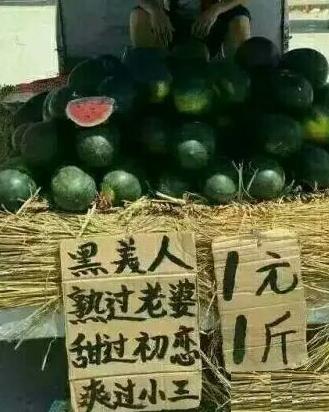 黑美人
熟过老婆
甜过初恋
爽过小三
1元
1斤